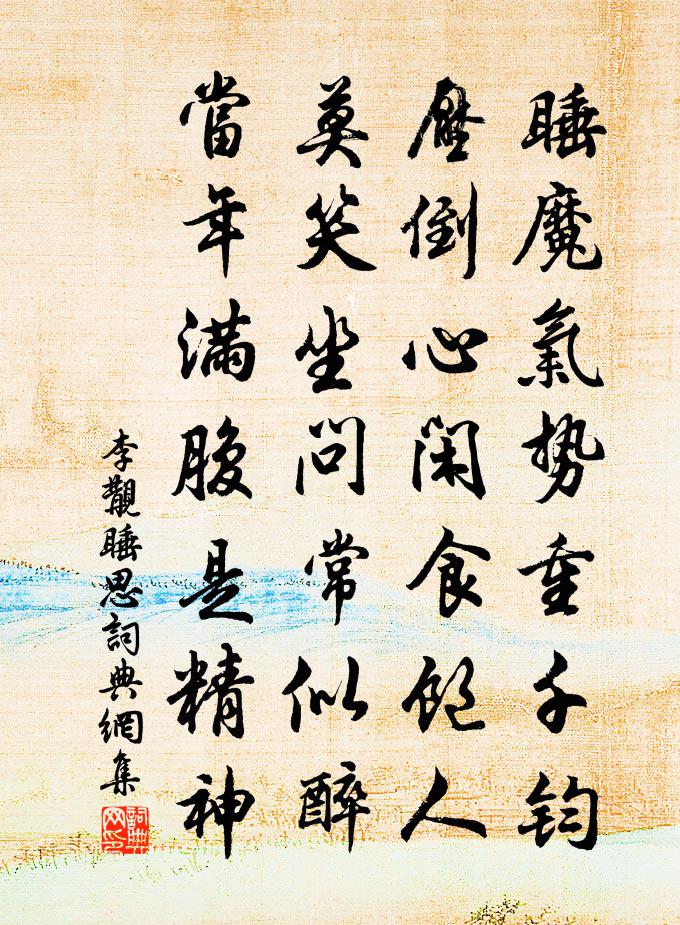 睡魔氣勢重千鈞
壓倒心閑食飽人
莫笑坐問常似醉
當年滿腹是精神
李覯睡思詞典網集
詞典网印